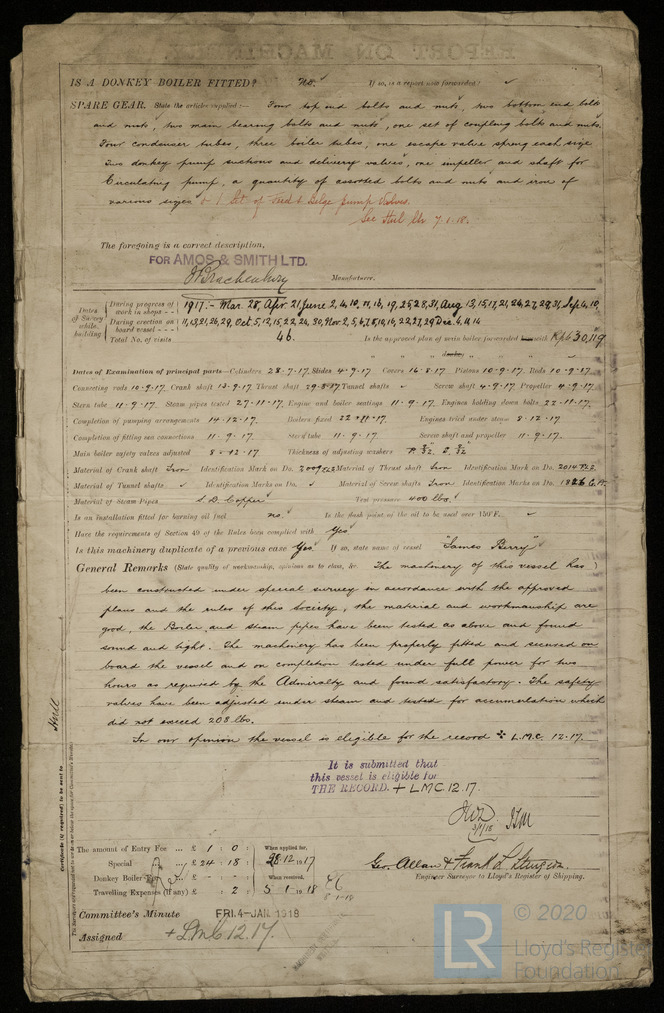 IS A DONKEY BOILER FITTED? No. If so, is a report now forwarded? ✓
SPARE GEAR. State the articles supplied:— Four top end bolts and nuts, two bottom end bolts
and nuts, two main bearing bolts and nuts, one set of coupling bolts and nuts.
Four condenser tubes, three boiler tubes, one escape valve spring each size
Two donkey pump suctions and delivery valves, one impeller and shaft for
Circulating pump, a quantity of assorted bolts and nuts and iron of
various sizes & 1 Set of Feed & Bilge pump Valves.
See Hull Ltr 7.1.18.
The foregoing is a correct description,
FOR AMOS & SMITH LTD.
Manufacturer.
Dates of Survey while building
During progress of work in shops - - 1917:- Mar. 28, Apr 21, June 2, 4, 10, 11, 16, 19, 25, 28, 31, Aug 13, 15, 17, 21, 24, 27, 29, 31, Sep 4, 10,
During erection on board vessel - - - 11, 13, 21, 26, 29, Oct 5, 12, 15, 22, 24, 30, Nov 2, 5, 6, 7, 8, 10, 16, 22, 27, 29 Dec 4, 11, 14
Total No. of visits 46. Is the approved plan of main boiler forwarded with Rpt 30,119
" " " donkey " " "
Dates of Examination of principal parts—Cylinders 28-7-17. Slides 4-9-17 Covers 16-8-17 Pistons 10-9-17. Rods 10-9-17.
Connecting rods 10-9-17. Crank shaft 13-9-17 Thrust shaft 29-8-17 Tunnel shafts ✓ Screw shaft 4-9-17 Propeller 4-9-17
Stern tube 11-9-17. Steam pipes tested 27-11-17. Engine and boiler seatings 11-9-17. Engines holding down bolts 22-11-17.
Completion of pumping arrangements 14-12-17. Boilers fixed 22-11-17. Engines tried under steam 8-12-17
Completion of fitting sea connections 11-9-17. Stern tube 11-9-17. Screw shaft and propeller 11-9-17.
Main boiler safety valves adjusted 8-12-17. Thickness of adjusting washers
Material of Crank shaft Iron Identification Mark on Do. Material of Thrust shaft Iron Identification Mark on Do.
Material of Tunnel shafts ✓ Identification Marks on Do. ✓ Material of Screw shafts Iron Identification Marks on Do.
Material of Steam Pipes S.D. Copper Test pressure 400 lbs.
Is an installation fitted for burning oil fuel no. Is the flash point of the oil to be used over 150°F. ✓
Have the requirements of Section 49 of the Rules been complied with Yes
Is this machinery duplicate of a previous case Yes If so, state name of vessel "James Berry"
General Remarks (State quality of workmanship, opinions as to class, &c. The machinery of this vessel has)
been constructed under special survey in accordance with the approved
plans and the rules of this Society, the material and workmanship are
good, the Boiler and steam pipes have been tested as above and found
sound and tight. The machinery has been properly fitted and secured on
board the vessel and on completion tested under full power for two
hours as required by the Admiralty and found satisfactory. The safety
valves have been adjusted under steam and tested for accumulation which
did not exceed 208 lbs.
In our opinion the vessel is eligible for the record + L.M.C. 12.17.
Hull
It is submitted that
this vessel is eligible for
THE RECORD. + LMC 12.17.
The amount of Entry Fee ... £ 1 : 0 : When applied for,
Special ... £ 24 : 18 : 28.12.1917
Donkey Boiler Fee ... £ - : - : When received,
Travelling Expenses (if any) £ : 2 : 5.1.1918
8-1-18
Geo. Allan & Frank L. Sturgeon.
Engineer Surveyor to Lloyd's Register of Shipping.
Committee's Minute FRI. 4-JAN. 1918
Assigned + LMC 12.17.
Certificate (if required) to be sent to
LR
© 2020
Lloyd's Register
Foundation